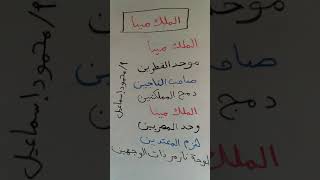 الملك مينا
الملك مينا
موحد القطرين
صاحب التاجين
دمج المملكتين
الملك مينا
وحد المصريين
هزم المعتدين
لوحة نارمر ذات الوجهين
م/محمود إسماعيل